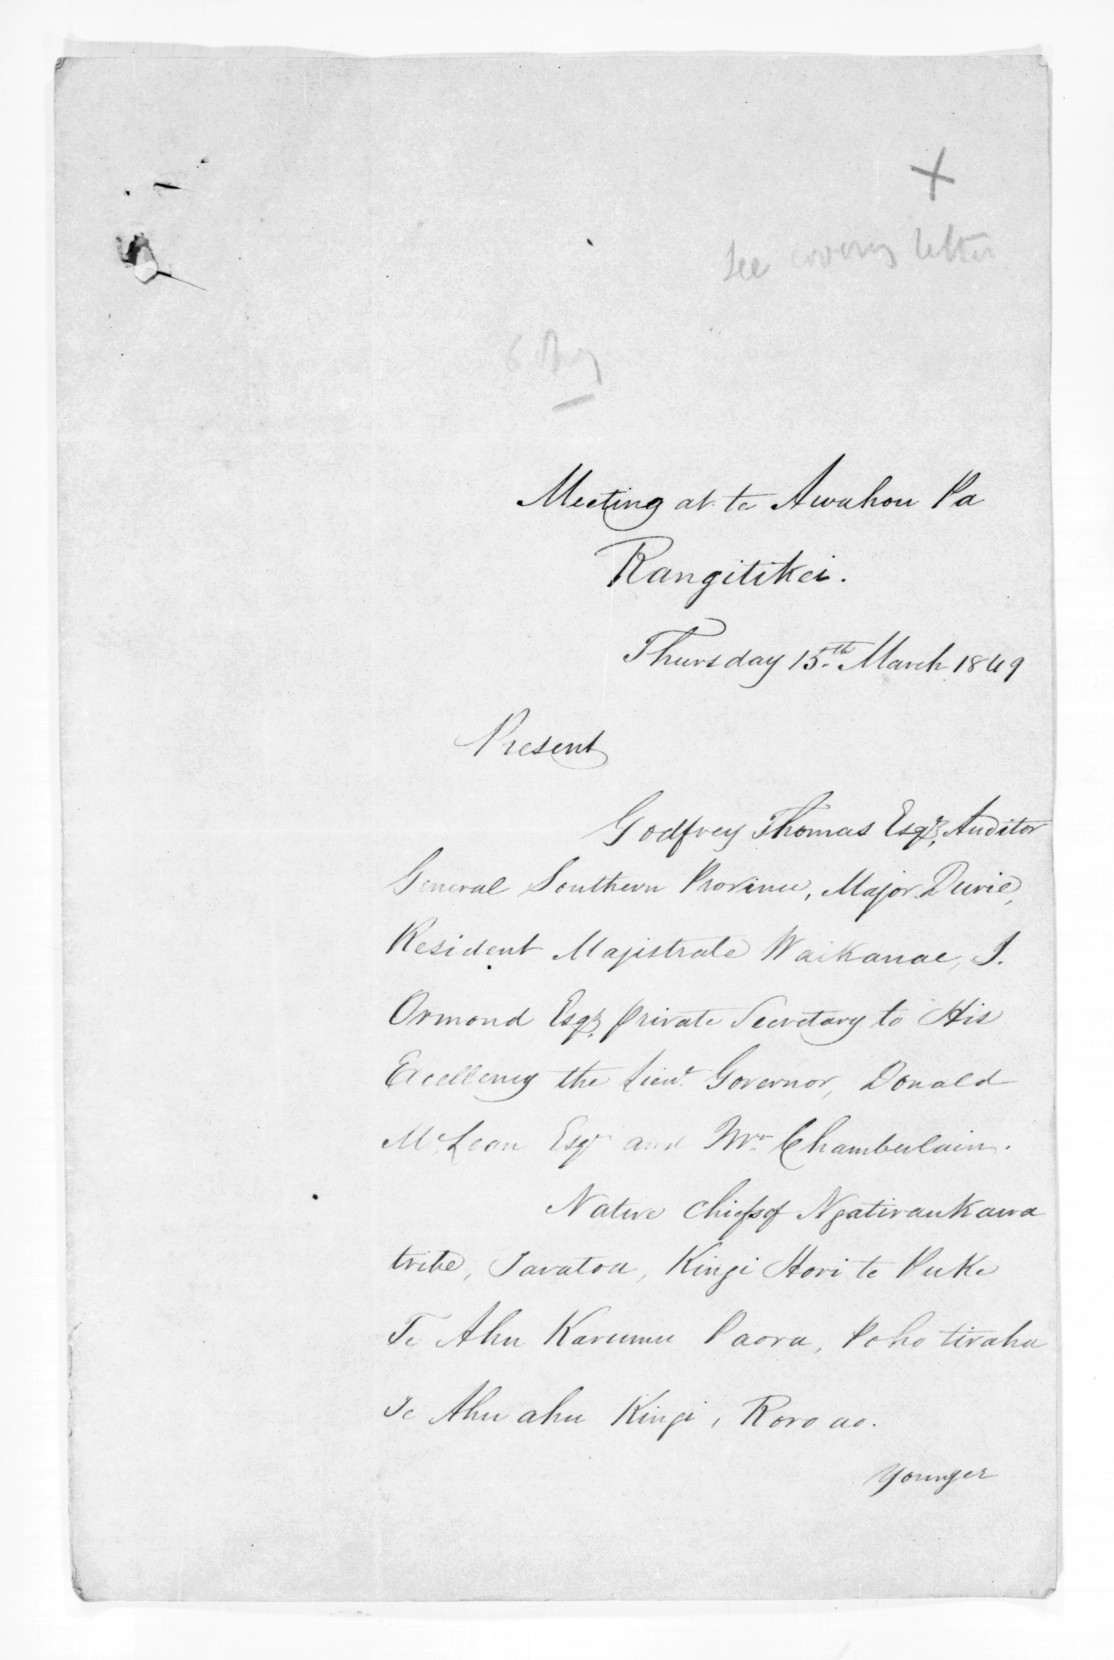 X
See covering letter
Meeting at te Awahou Pa
Rangitikei.
Thursday 15th. March 1849
Present
Godfrey Thomas Esqr, Auditor
General Southern Province, Major Durie,
Resident Magistrate Waikanae, J.
Ormond Esqr. private Secretary to His
Excellency the Lieut. Governor, Donald
McLean Esqr and Mr. Chamberlain.
Native chiefs of Ngatiraukawa
tribe, Taratoa, Kingi Hori te Puke
Te Ahu Karumu Paora, Poho tiraha
Te Ahu ahu Kingi, Roro ao.
Younger